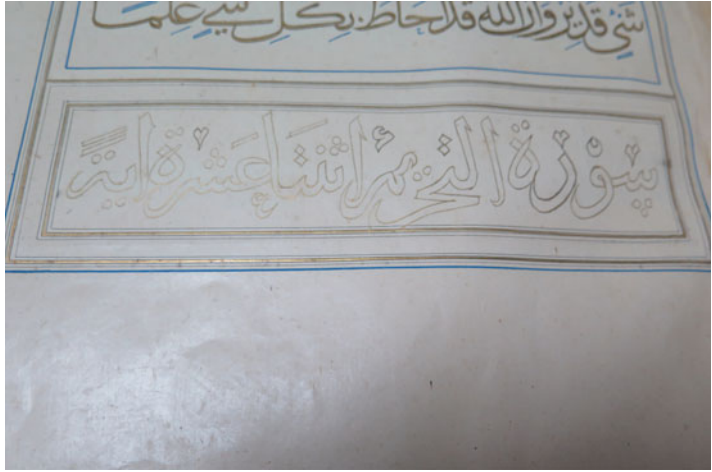 شَيْءٍ قَدِيرٌ وَأَنَّ اللَّهَ قَدْ أَحَاطَ بِكُلِّ شَيْءٍ عِلْمًا
سورة التحريم اثنتا عشرة اية